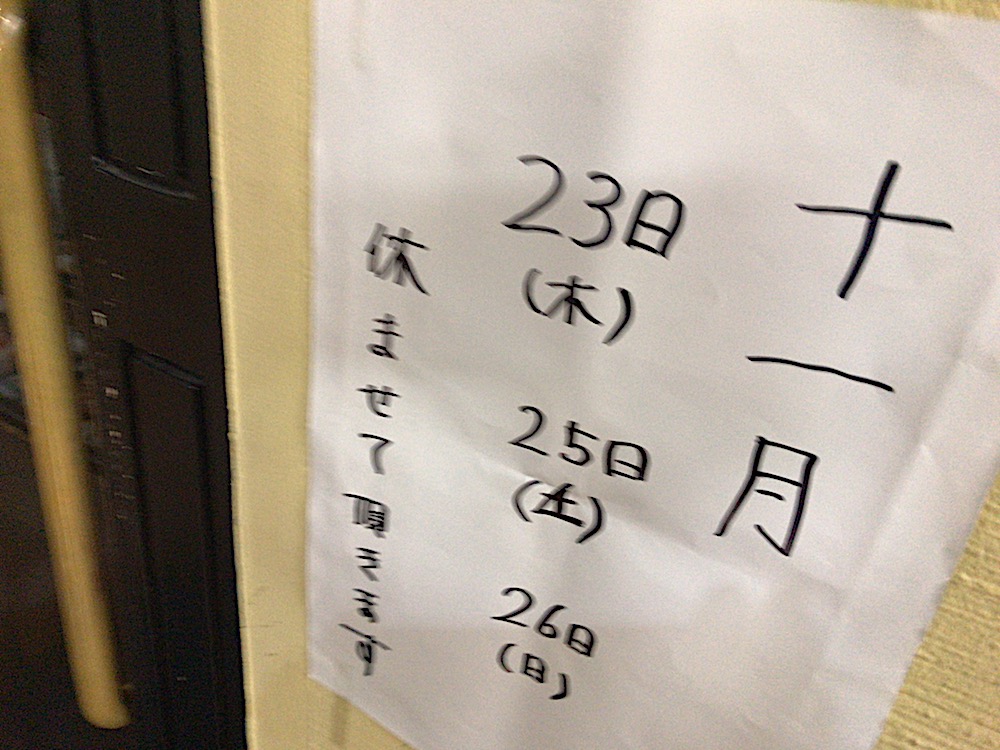 十一月
23日
(木)
25日
(土)
26日
(日)
休ませて頂きます